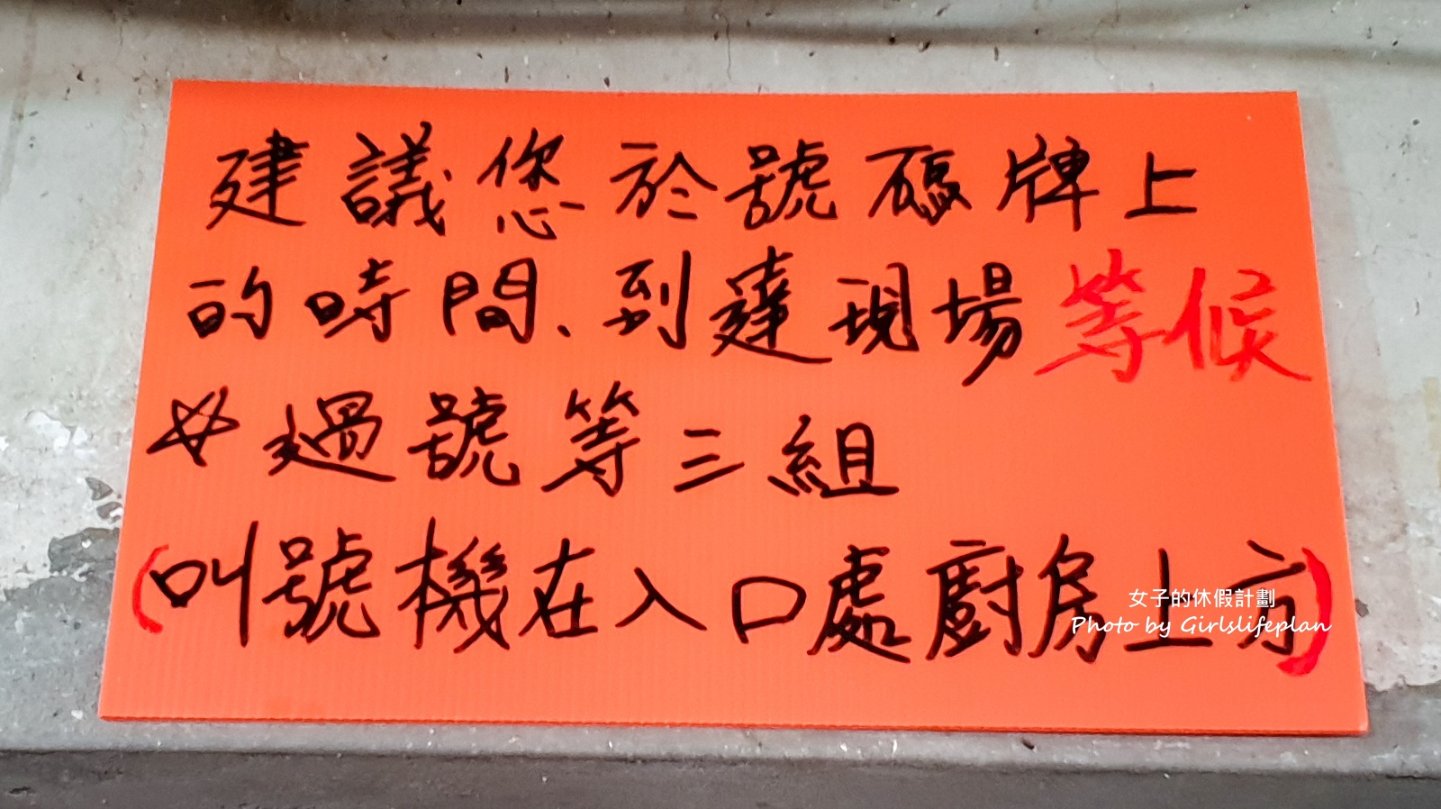 建議您於號碼牌上
的時間、到達現場等候
☆過號等三組
(叫號機在入口處廚房上方)
女子的休假計劃
Photo by Girlslifeplan